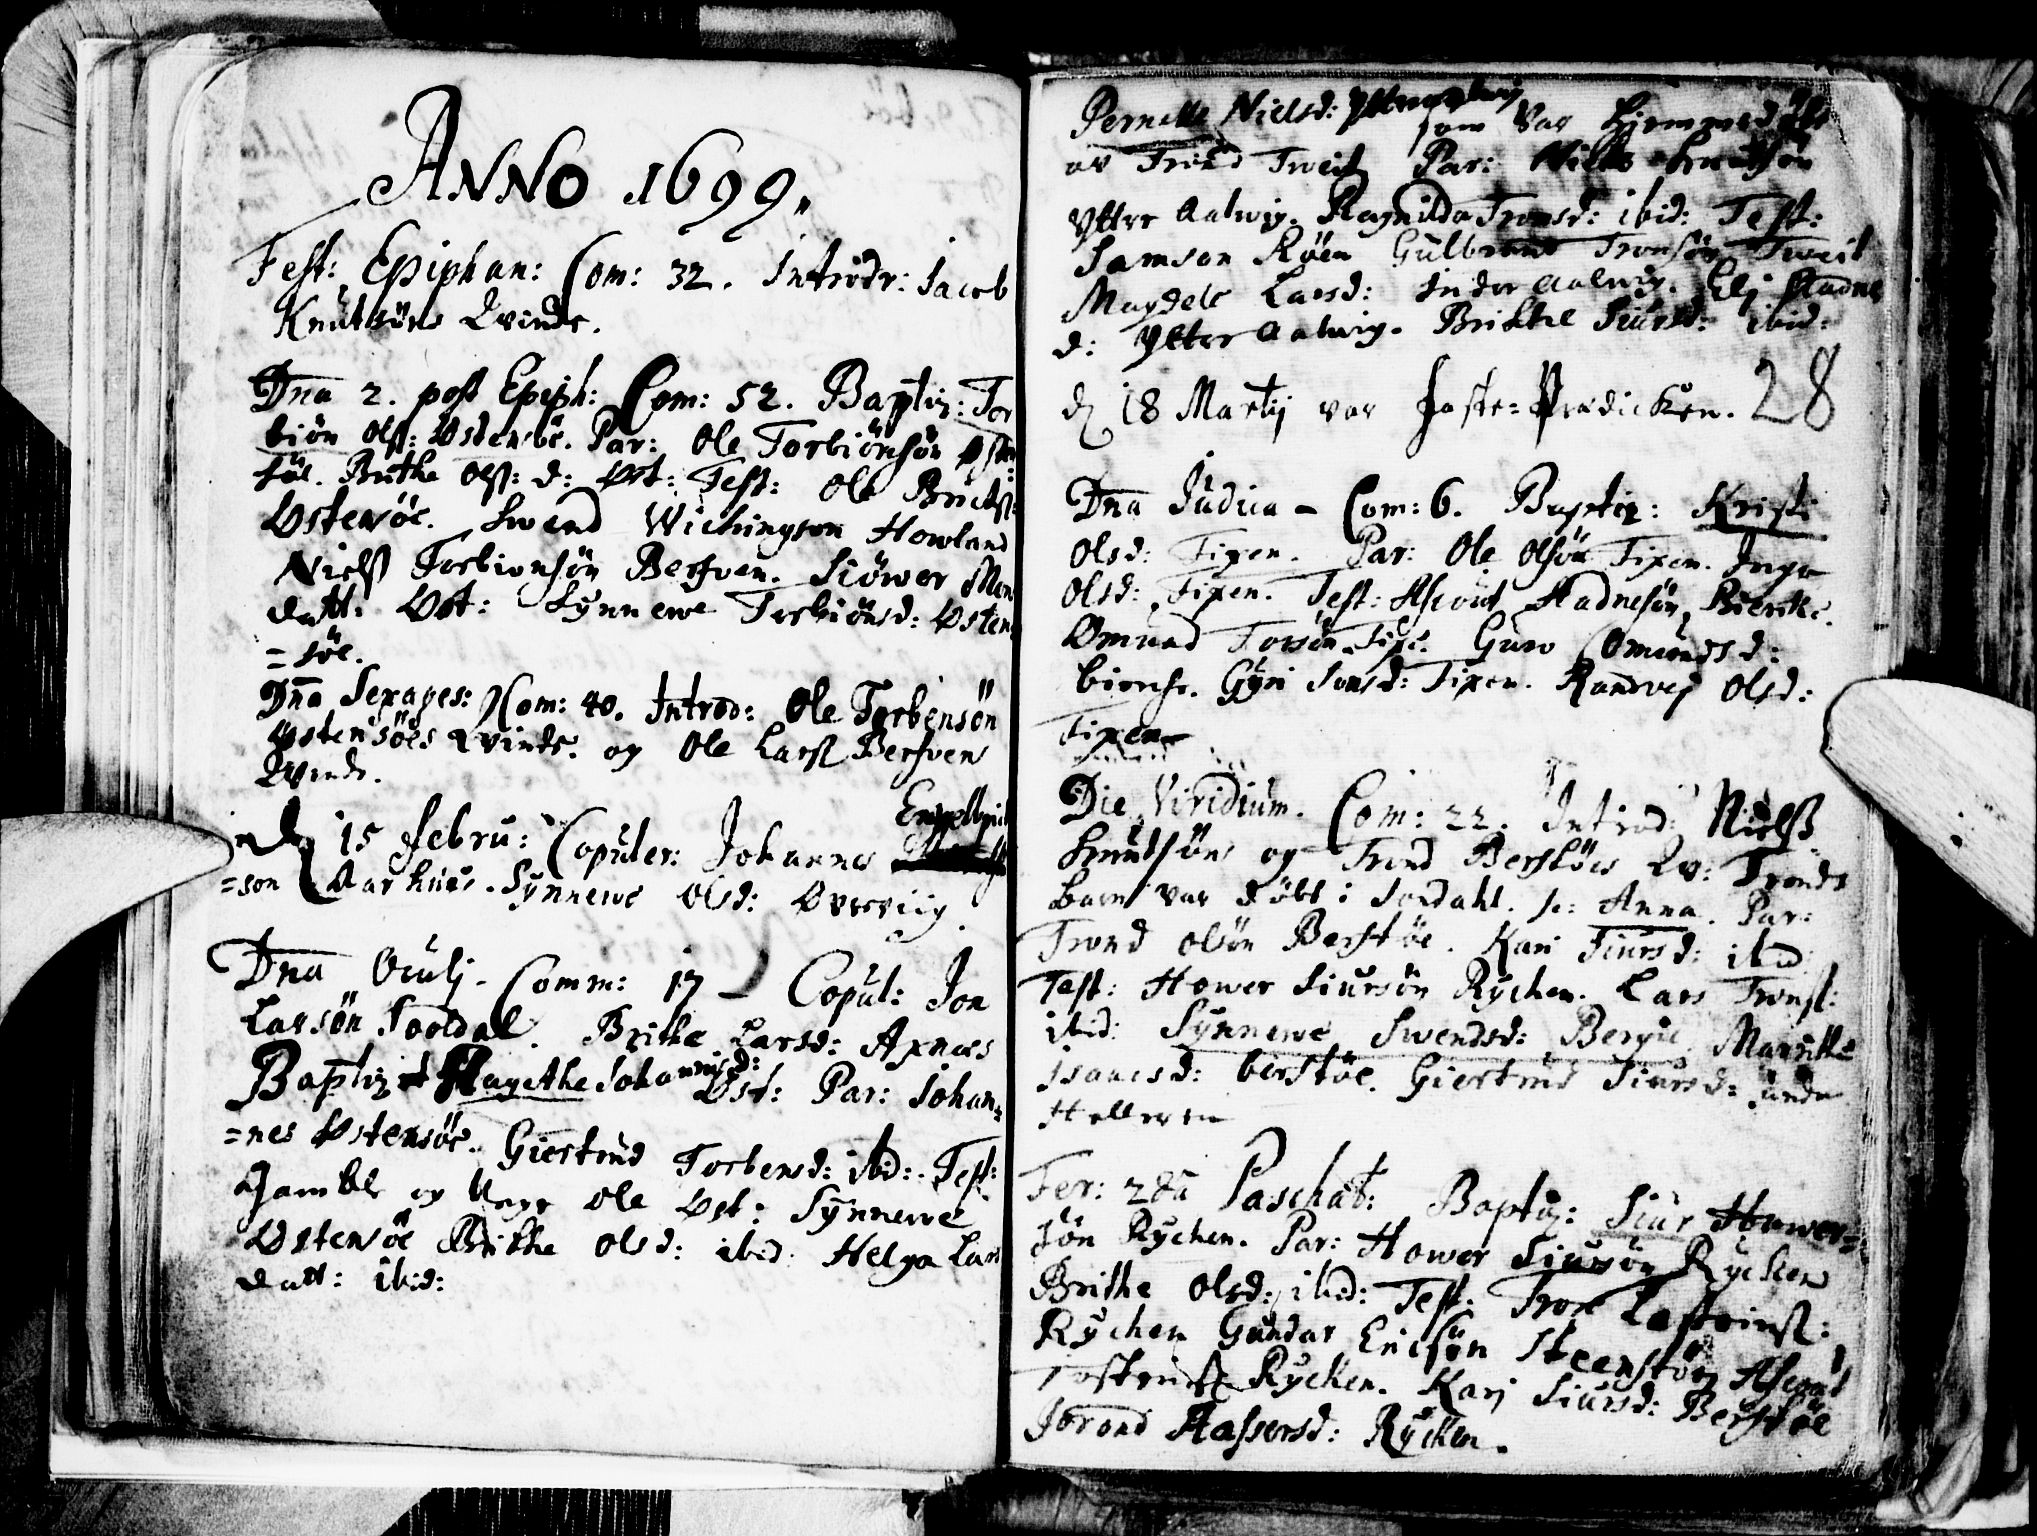 ANNO 1699.
Fest: Epiphan: Com: 32. Introdr: Jacob
Knutsøns Qvinde.
Dna 2. post Epiph: Com: 52. Baptiz: Tor
biön Ols: Ostensöe. Par: Ole Torbiönsön Osten
söe. Brithe Ols: d: Ost: Test: Ole
Ostensöe. Swend Wichingson Howland
Nielß Torbionsön Berven. Siöwer
datt: Ost: Synnewe Torbiönsd: Osten
=söe.
Dna Sexages: Com: 40. Introd: Ole Torbensön
Ostensöes Qvinde. og Ole Larß Berfven
Qvinde.
d 15 Febru: Copuler: Johannes Engelbrict
=son Aarhuus. Synnewe Olsd:
Dna Oculj. Comm: 17 – Copul: Jon
Larsön Sootdal. Brithe Larsd: Axnæs
Baptiz Aagethe Johannisd:
Ost: Par: Johan=
=nes Ostensöe. Giertrud Torbensd: ibid: Test:
Gamble og Unge Ole Ost: Synnewe
Ostensöe Brithe Olsd: ibid: Helga Lars
datt: ibid:
Pernille Nielsd:
som var
av Trond Tweit Par: Niels Knutsön
Ytter Aalwig. Ragnilda Tronsd: ibid: Test:
Samson Röen Gulbrand Tronsön Tweit
Magdele Larsd: Inder Aalwig. Elj Hadne
d: Ytter Aalwig. Brithe Siursd: ibid:
d 18 Martij var Faste=Prædicken. 28
Dna Judica – Com: 6. Baptiz: Kristi
Olsd: Tixen. Par: Ole Olsön Tixen. Inga
Olsd: Tixen. Test: Asvut Hadnesön Biercke.
Omund Torsön Tixe. Guro Omundsd:
bierche. Gyri Jonsd: Tixen. Randvej Olsd:
Tixen
Die Viridium. Com: 22. Introd: Nielß
Knutsöns og Trond Berstöes Qv: Tronds
barn var döbt i Jondahl. n: Anna. Par:
Trond Olsön Berstöe. Kari Siursd: ibid:
Test: Hower Siursön Rychen. Lars Tronß:
ibid: Synnewe Swendsd: Bergie Maritte
Isaacsd: berstöe. Giertrud Siursd:
Helleren
Fer: 2da Paschat: Baptiz: Siur Hower=
sön Rychen. Par: Hower Siursön Rychen
Brithe Olsd: ibid: Test:
Rychen Gundar Ericsön Steenstöe Asvut
Rychen. Karj Siursd: Berstöe
Jorond Hassersd: Rychen.